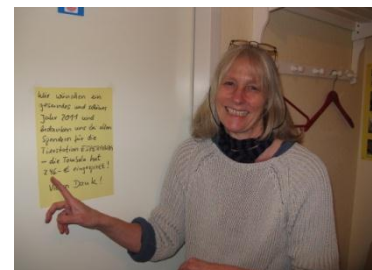 Wir wünschen ein
gesundes und schönes
Jahr 2011 und
bedanken uns bei allen
Spendern für die
Tierstation
- die Tombola hat
€ eingespielt!
Vielen Dank!